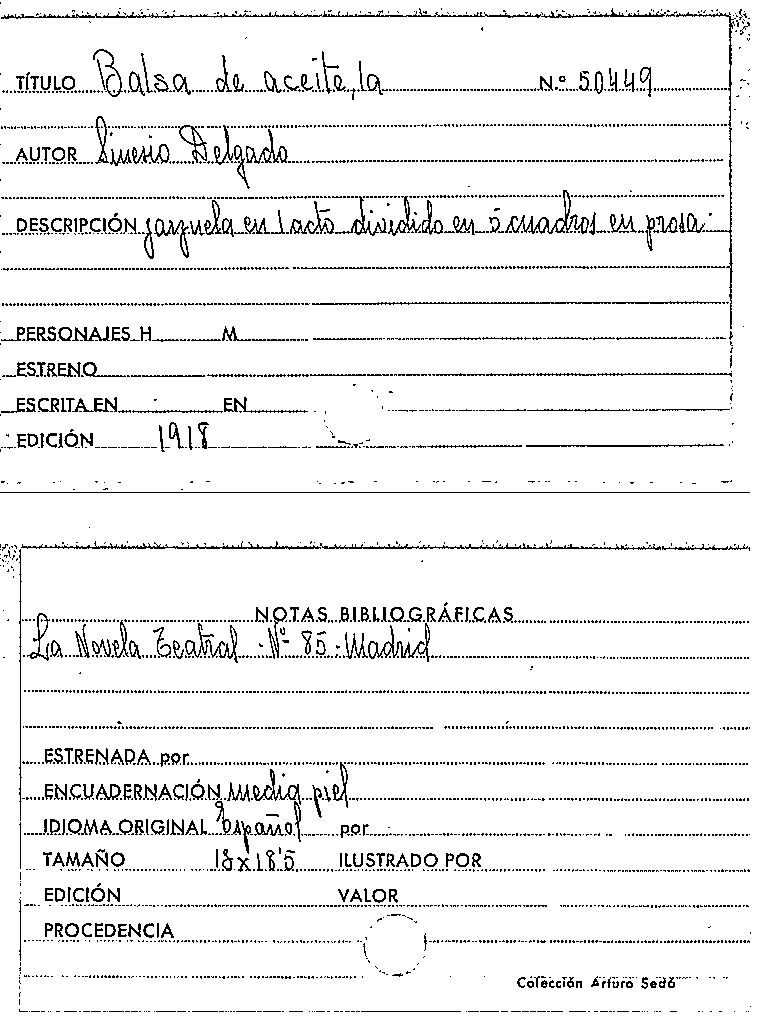 TÍTULO Balsa de aceite, la N.º 50449
AUTOR Sinesio Delgado
DESCRIPCIÓN zarzuela en 1 acto dividido en 5 cuadros en prosa.
PERSONAJES H M
ESTRENO
ESCRITA EN EN
EDICIÓN 1918
NOTAS BIBLIOGRÁFICAS
La Novela Teatral - Nº 85 - Madrid
ESTRENADA por
ENCUADERNACIÓN media piel
IDIOMA ORIGINAL Español por
TAMAÑO 18x18'5 ILUSTRADO POR
EDICIÓN VALOR
PROCEDENCIA
Colección Arturo Sedó